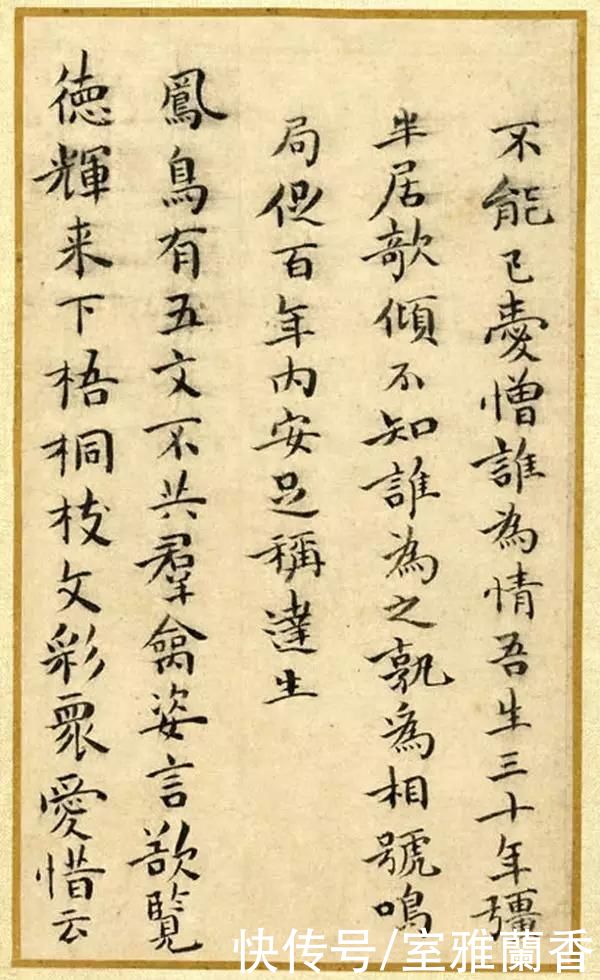 不能已愛憎誰為情吾生三十年彊
半居欹傾不知誰為之孰為相號鳴
局促百年内安足稱達生
鳳鳥有五文不共羣禽姿言欲覽
徳輝来下梧桐枝文彩眾愛惜云
快传号/室雅蘭香